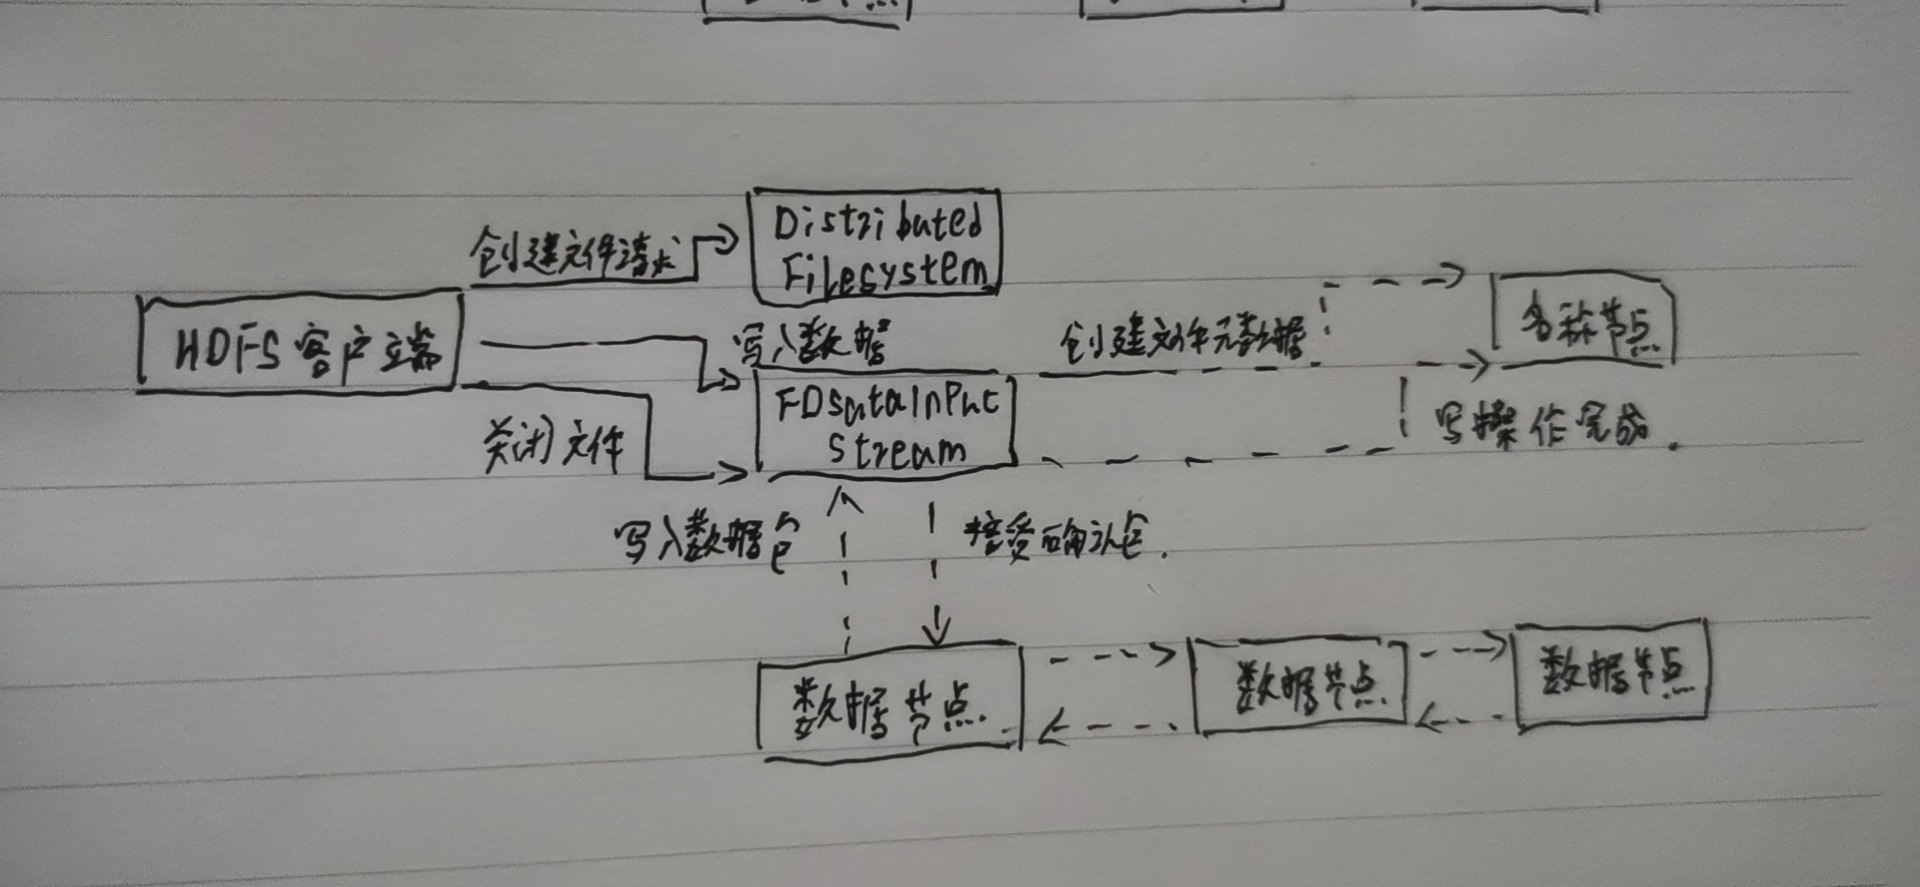 创建文件请求
Distributed
Filesystem
HDFS客户端
写入数据
创建文件元数据
名称节点
FDSataInPut
Stream
关闭文件
写操作完成.
写入数据包
接受确认包.
数据节点.
数据节点.
数据节点